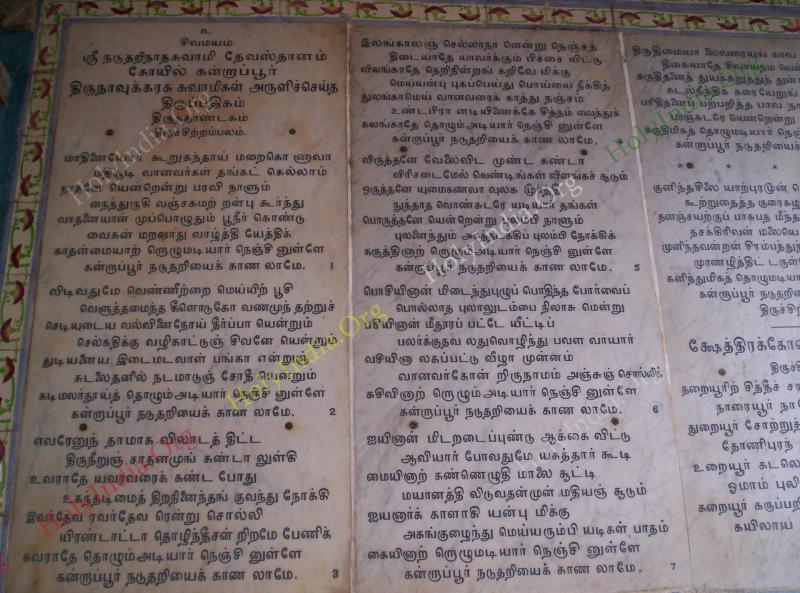 உ
சிவமயம்
ஸ்ரீ நடுதறிநாதசுவாமி தேவஸ்தானம்
கோயில் கன்றாப்பூர்
திருநாவுக்கரசு சுவாமிகள் அருளிச்செய்த
திருப்பதிகம்
திருத்தாண்டகம்
திருச்சிற்றம்பலம்.
மாதினையோர் கூறுகந்தாய் மறைகொ ணாவா
வானவர்கள் தங்கட் கெல்லாம்
நாதனே யென்றென்று பரவி நாளும்
நைந்துருகி வஞ்சகமற் றன்பு கூர்ந்து
வாதனையான் முப்பொழுதும் பூநீர் கொண்டு
வைகன் மறவாது வாழ்த்தி யேத்திக்
காதன்மையாற் றொழுமடியார் நெஞ்சி னுள்ளே
கன்றாப்பூர் நடுதறியைக் காண லாமே. 1
விடிவதுமே வெண்ணீற்றை மெய்யிற் பூசி
வெளுத்தமைந்த கீளொடுகோ வணமுந் தற்றுச்
செடியுடைய வல்வினைநோய் தீர்ப்பா யென்றும்
செல்கதிக்கு வழிகாட்டுஞ் சிவனே யென்றும்
துடியனைய இடைமடவாள் பங்கா என்றும்
சுடலைதனில் நடமாடுஞ் சோதீ யென்றும்
கடிமலர்தூய்த் தொழும்அடியார் நெஞ்சி னுள்ளே
கன்றாப்பூர் நடுதறியைக் காண லாமே. 2
எவரேனுந் தாமாக விலாடத் திட்ட
திருநீறுஞ் சாதனமுங் கண்டா லுள்கி
உவராதே யவரவரைக் கண்ட போது
உகந்தடிமைத் திறநினைந்தங் குவந்து நோக்கி
இவர்தேவ ரவர்தேவ ரென்று சொல்லி
யிரண்டாட்டா தொழிந்தீசன் றிறமே பேணிக்
கவராதே தொழும்அடியார் நெஞ்சி னுள்ளே
கன்றாப்பூர் நடுதறியைக் காண லாமே. 3
இலங்காலஞ் செல்லாநா ளென்று நெஞ்சத்
திடையாதே யாவர்க்கும் பிச்சை யிட்டு
விலங்காதே நெறிநின்றங் கறிவே மிக்கு
மெய்யன்பு புகப்பெய்து பொய்யை நீக்கித்
துலங்காமெய் வானவரைக் காத்து நஞ்சம்
உண்டபிரா னடியிணைக்கே சித்தம் வைத்துக்
கலங்காதே தொழும்அடியார் நெஞ்சி னுள்ளே
கன்றாப்பூர் நடுதறியைக் காண லாமே. 4
விருத்தனே வேலைவிட முண்ட கண்டா
விரிசடைமேல் வெண்டிங்கள் விளங்கச் சூடும்
ஒருத்தனே யுமைகணவா வுலக மூர்த்தீ
நுந்தாத வொண்சுடரே யடியார் தங்கள்
பொருத்தனே யென்றென்று புலம்பி நாளும்
புலனைந்தும் அகத்தடக்கிப் புலம்பி நோக்கிக்
கருத்தினாற் றொழும்அடியார் நெஞ்சி னுள்ளே
கன்றாப்பூர் நடுதறியைக் காண லாமே. 5
பொசியினான் மிடைந்துபுழுப் பொதிந்த போர்வைப்
பொல்லாத புலாலுடம்பை நிலாசு மென்று
பசியினான் மீதூரப் பட்டே யீட்டிப்
பலர்க்குதவ லதுவொழிந்து பவள வாயார்
வசியினா லகப்பட்டு வீழா முன்னம்
வானவர்கோன் றிருநாமம் அஞ்சுஞ் சொல்லிக்
கசிவினாற் றொழுமடியார் நெஞ்சி னுள்ளே
கன்றாப்பூர் நடுதறியைக் காண லாமே. 6
ஐயினான் மிடறடைப்புண்டு ஆக்கை விட்டு
ஆவியார் போவதுமே யகத்தார் கூடி
மையினாற் கண்ணெழுதி மாலை சூட்டி
மயானத்தி லிடுவதன்முன் மதியஞ் சூடும்
ஐயனார்க் காளாகி யன்பு மிக்கு
அகங்குழைந்து மெய்யரும்பி யடிகள் பாதம்
கையினாற் றொழுமடியார் நெஞ்சி னுள்ளே
கன்றாப்பூர் நடுதறியைக் காண லாமே. 7
திருதிமையா லைவரையுங் காவ
திகையாதே சிவாயநம
கடனீந்திக்
கன்றாப்பூர்
குனிந்தசிலை யாற்புரமூன்
கூற்றுதைத்த
தனஞ்சயற்குப் பாசுபத
தசக்கிரிவன்
முனிந்தவன்றன்
முரணழித்திட்
கனிந்துமிகத் தொழுமடியார்
கன்றாப்பூர் நடுதறி
க்ஷேத்திரக்கோ
நறையூரிற் சித்தீச்
நாரையூர் நா
துறையூர் சோற்றுத்
தோணிபுரந்
உறையூர் கடலொ
ஓமாம் புலி
கறையூர் கருப்பறி
கயிலாய
HolyIndia.Org
HolyIndia.Org
HolyIndia.Org
HolyIndia.Org
HolyIndia.Org